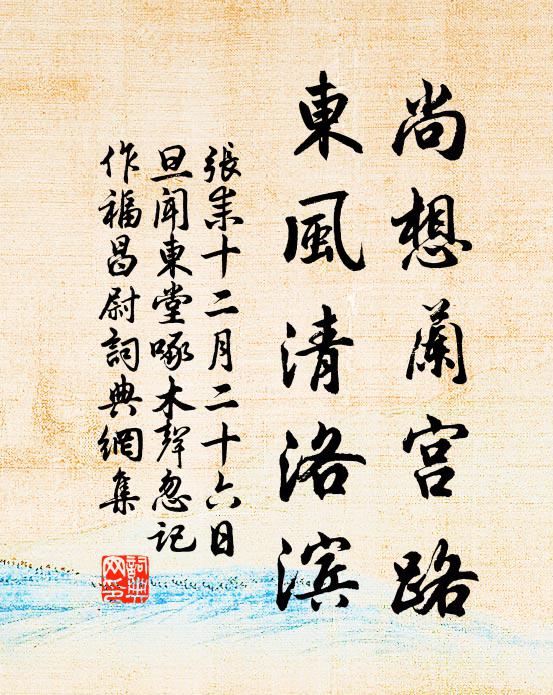 尚想蘭宫路
東風清洛滨
張耒十二月二十六日
旦聞東堂啄木聲忽記
作福昌尉詞典網集